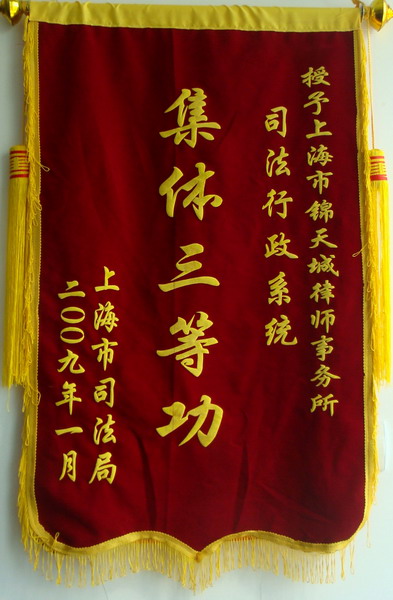 授予上海市锦天城律师事务所
司法行政系统
集体三等功
上海市司法局
二〇〇九年一月